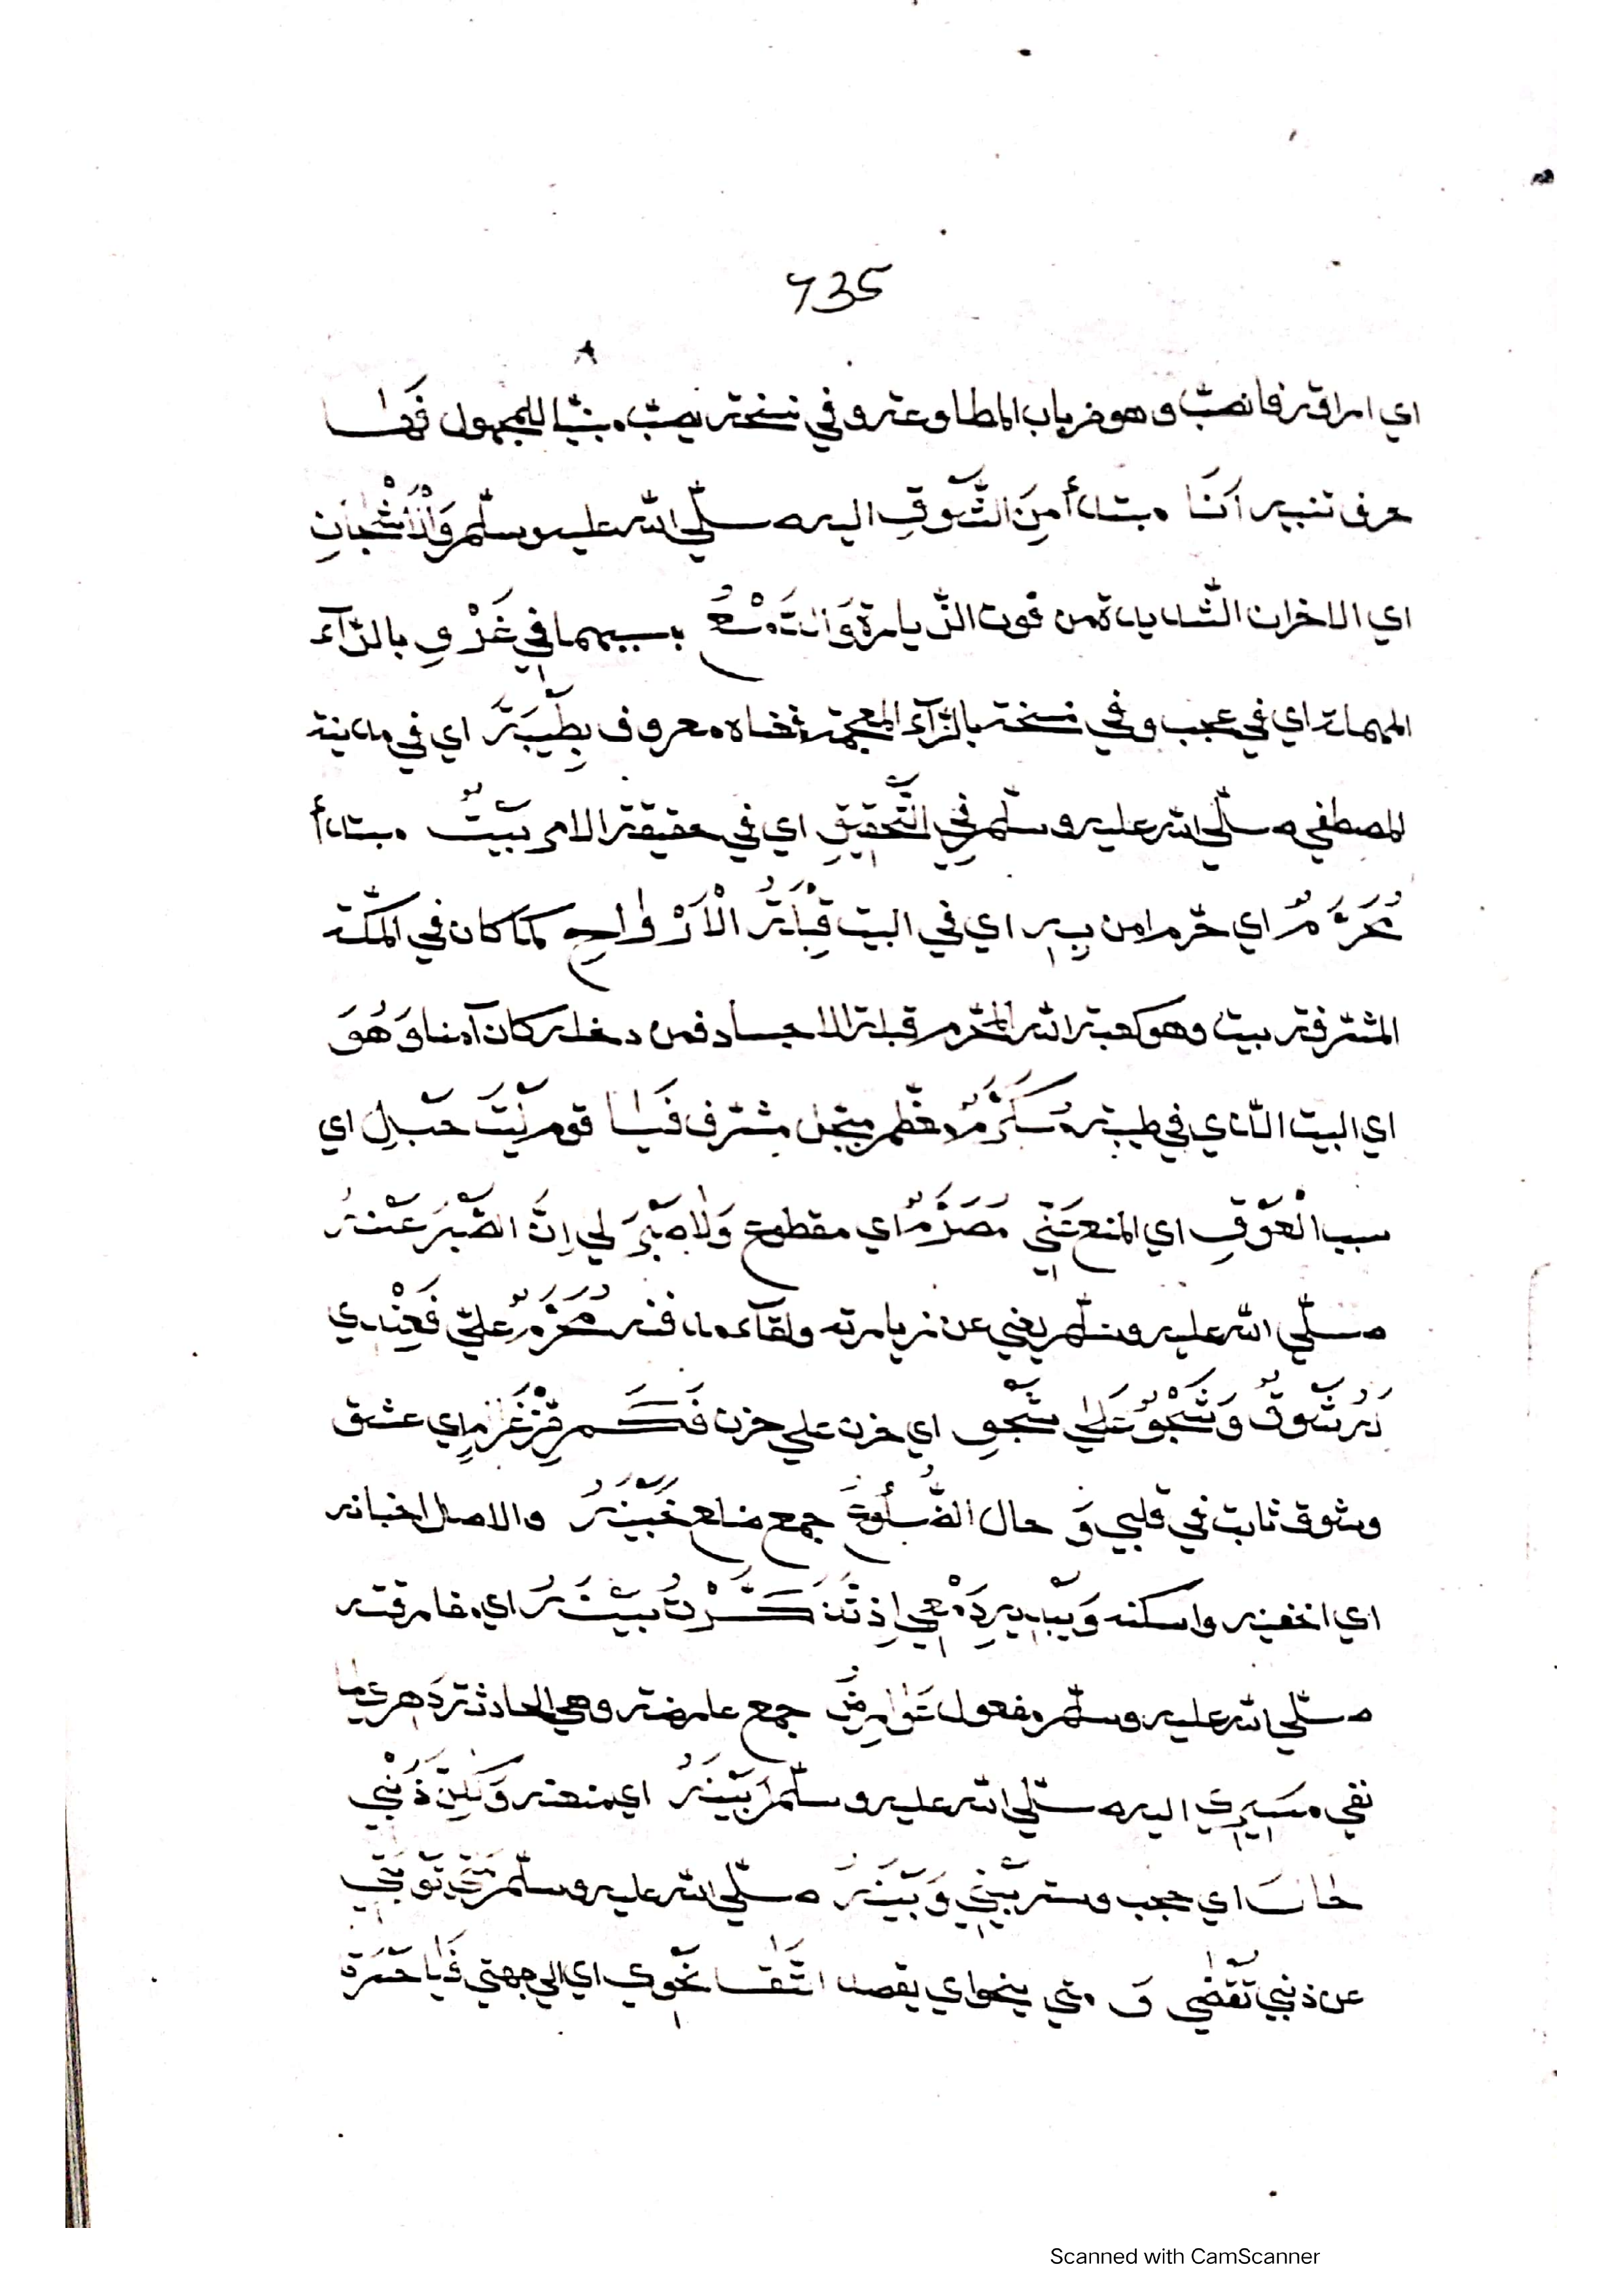 735
اي اراقته فانصبّ وهو من باب المطاوعة وفي نسخة يصبّ مبنيّا للمجهول فَهَا
حرف تنبيه اَنَا مبتدأ مِنَ الشَّوْقِ اليه صلّي الله عليه وسلّم وَالْأَشْجَانِ
اي الاحزان الشّديدة من فوت الزّيارة وَالدَّمْعُ بسببهما فِي غَرْوٍ بالرّآء
المهملة اي في عجب وفي نسخة بالزّآء المعجمة فمعناه معروف بِطَيْبَةَ اي في مدينة
المصطفي صلّي الله عليه وسلّم فِي التَّحْقِيقِ اي في حقيقة الامر بَيْتٌ مبتدأ
مُحَرَّمٌ اي حرّم امن بِهِ اي في البيت قِبْلَةُ الْاَرْوَاحِ كما كان في المكّة
المشرّفة بيت وهو كعبة الله المحرّم قبلة الاجساد فمن دخله كان آمنا وَهُوَ
اي البيت الّذي في طيبة مُكَرَّمٌ معظّم مبجّل مشرّف فَيَا قوم لَيْتَ حَبْلِ اي
سبب الْعَوْقِ اي المنع عَنِّي مُصَرَّمٌ اي مقطوع وَلَا صَبْرَ لي اِنَّ الصَّبْرَ عَنْهُ
صلّي الله عليه وسلّم يعني عن زيارته ولقآء مدفنه مُحَرَّمٌ عليّ فَعِنْدِي
لَهُ شَوْقٌ وَشَجْوٌ عَلَي شَجْوِ اي حزن علي حزن فَكَمْ مِنْ غَرَامٍ اي عشق
وشوق ثابت في قلبي وَ حال الضُّلُوعُ جمع ضلع خَبَيْنَهُ والاصل اخبانه
اي اخفينه واسكنه وَيُبْدِيهِ دَمْعِي اِذْ تَذَكَّرْتُ بَيْنَهُ اي مفارقته
صلّي الله عليه وسلّم مفعول عَوَارِضُ جمع عارضة وهي الحادثة دَهْرِي مَا
نفي مَسِيرِي اليه صلّي الله عليه وسلّم اَبَيْنَهُ اي منعنه وَلَكِنَّ ذَنْبِي
حَالَ اي حجب وستر بَيْنِي وَبَيْنَهُ صلّي الله عليه وسلّم مَتَي تَوْبَتِي
عن ذنبي تُقْضَي وَ متي ينحو اي يقصد التُّقَا نَحْوِي اي الي جهتي فَيَا حَسْرَةَ
Scanned with CamScanner